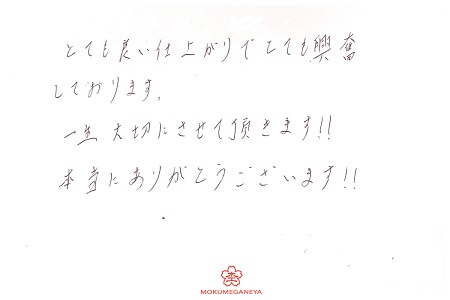 とても良い仕上がりでとても興奮
しております。
一生大切にさせて頂きます!!
本当にありがとうございます!!
MOKUMEGANEYA